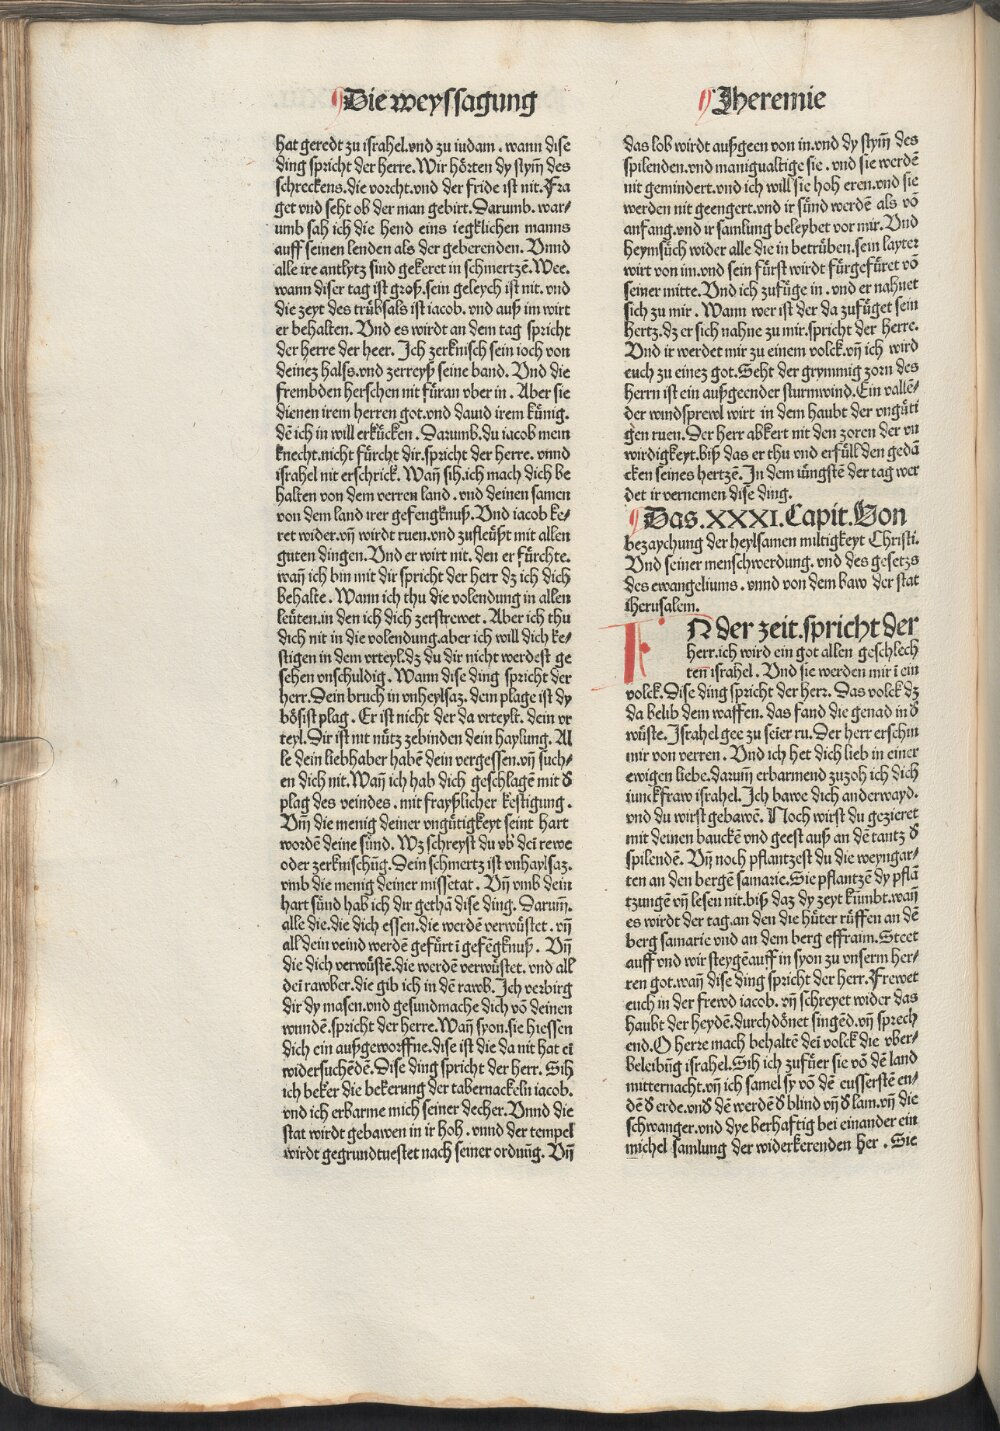 Die weyssagung
Jheremie
hat geredt zu israhel.vnd zu iudam . wann dise
ding spricht der herre. Wir hörten dy stym̄ des
schreckens.die vorcht.vnd der fride ist nit. Fra
get vnd seht ob der man gebirt. Darumb. war⸗
umb sah ich die hend eins iegklichen manns
auff seinen lenden als der geberenden. Vnnd
alle ire antlytz sind gekeret in schmertzē. Wee.
wann diser tag ist groß. sein geleych ist nit. vnd
die zeyt des trübsals ist iacob. vnd auß im wirt
er behalten. Vnd es wirdt an dem tag spricht
der herre der heer. Ich zerknisch sein ioch von
deinez halss. vnd zerreyß seine band. Vnd die
frembden herschen nit füran vber in . Aber sie
dienen irem herren got. vnd dauid irem künig.
dē ich in will erkücken . Darumb. du iacob mein
knecht. nicht fürcht dir. spricht der herre. vnnd
israhel nit erschrick. Wan̄ sih. ich mach dich be
halten von dem verren land . vnd deinen samen
von dem land irer gefengknuß. Vnd iacob ke⸗
ret wider. vn̄ wirdt ruen. vnd zufleüßt mit allen
guten dingen. Vnd er wirt nit. den er fürchte.
wan̄ ich bin mit dir spricht der herr dz ich dich
behalte . Wann ich thu die volendung in allen
leüten. in den ich dich zerstrewet . Aber ich thu
dich nit in die volendung. aber ich will dich ke⸗
stigen in dem vrteyl. dz du dir nicht werdest ge
sehen vnschuldig . Wann dise ding spricht der
herr. Dein bruch in vnheylsaz. dem plage ist dy
bösist plag . Er ist nicht der da vrteylt. dein vr
teyl. Dir ist nit nütz zebinden dein haylung. Al
le dein liebhaber habē dein vergessen. vn̄ such⸗
en dich nit. Wan̄ ich hab dich geschlagē mit d̄
plag des veindes . mit frayßlicher kestigung .
Vm̄ die menig deiner vngütigkeyt seint hart
wordē deine sünd. Wz schreyst du vb̄ dei rewe
oder zerknischūg. Dein schmertz ist vnhaylsaz.
vmb die menig deiner missetat . Vn̄ vmb dein
hart sünd hab ich dir gethā dise ding. Darum̄.
alle die. die dich essen. die werdē verwüstet . vn̄
all dein veind werdē gefürt ī gefēgknuß . Vn̄
die dich verwüstē. die werdē verwüstet. vnd all
dei rawber. die gib ich in dē rawb. Ich verbirg
dir dy masen. vnd gesundmache dich vō deinen
wundē. spricht der herre. Wan̄ syon. sie hiessen
dich ein außgeworffne. dise ist die da nit hat ei
widersuchēdē. Dise ding spricht der herr. Sih
ich beker die bekerung der tabernackeln iacob.
vnd ich erbarme mich seiner decher. Vnnd die
stat wirdt gebawen in ir hoh . vnnd der tempel
wirdt gegrundtuestet nach seiner ordnūg. Vn̄
das lob wirdt außgeen von in. vnd dy stym̄ des
spilenden. vnd manigualtige sie . vnd sie werdē
nit gemindert. vnd ich will sie hoh eren. vnd sie
werden nit geengert. vnd ir sünd werdē als vō
anfang. vnd ir samlung beleybet vor mir. Vnd
heymsüch wider alle die in betrüben. sein layter
wirt von im. vnd sein fürst wirdt fürgefüret vō
seiner mitte. Vnd ich zufüge in . vnd er nahnet
sich zu mir . Wann wer ist der da zufüget sein
hertz. dz er sich nahne zu mir. spricht der herre.
Vnd ir werdet mir zu einem volck. vn̄ ich wird
euch zu einez got. Seht der grymmig zorn des
herrn ist ein außgeender sturmwind. Ein vallē⸗
der windsprewl wirt in dem haubt der vngüti
gen ruen. Der herr abkert nit den zoren der vn
wirdigkeyt. biß das er thu vnd erfüll den gedā
cken seines hertzē. In dem iüngstē der tag wer
det ir vernemen dise ding.
Das .XXXI. Capit. Von
bezaychung der heylsamen miltigkeyt Christi.
Vnd seiner menschwerdung. vnd des gesetzs
des ewangeliums . vnnd von dem baw der stat
iherusalem.
IN der zeit. spricht der
herr. ich wird ein got allen geschlech
ten̄ israhel . Vnd sie werden mir ī ein
volck. Dise ding spricht der herz. Das volck dz
da belib dem waffen. das fand die genad in d̄
wüste. Israhel gee zu seier ru. Der herr erschin
mir von verren . Vnd ich het dich lieb in einer
ewigen liebe. darum̄ erbarmend zuzoh ich dich
iunckfraw israhel. Ich bawe dich anderwayd.
vnd du wirst gebawē. Noch wirst du gezieret
mit deinen bauckē vnd geest auß an dē tantz d̄
spilendē. Vn̄ noch pflantzest du die weyngar⸗
ten an den bergē samarie. Sie pflantzē dy pflā
tzungē vn̄ lesen nit. biß daz dy zeyt kūmbt. wan̄
es wirdt der tag. an den die hüter rüffen an dē
berg samarie vnd an dem berg effraim. Steet
auff vnd wir steygē auff in syon zu vnserm her⸗
ren got. wan̄ dise ding spricht der herr. Frewet
euch in der frewd iacob. vn̄ schreyet wider das
haubt der heydē. durchdönet singēd. vn̄ sprech
end. O herre mach behaltē dei volck die vber⸗
beleibūg israhel. Sih ich zufüer sie vō dē land
mitternacht. vn̄ ich samel sy vō dē eusserstē en⸗
dē d̄ erde. vnd̄ dē werdē d̄ blind vn̄ d̄ lam. vn̄ die
schwanger. vnd dye berhaftig bei einander ein
michel samlung der widerkerenden her . Sie